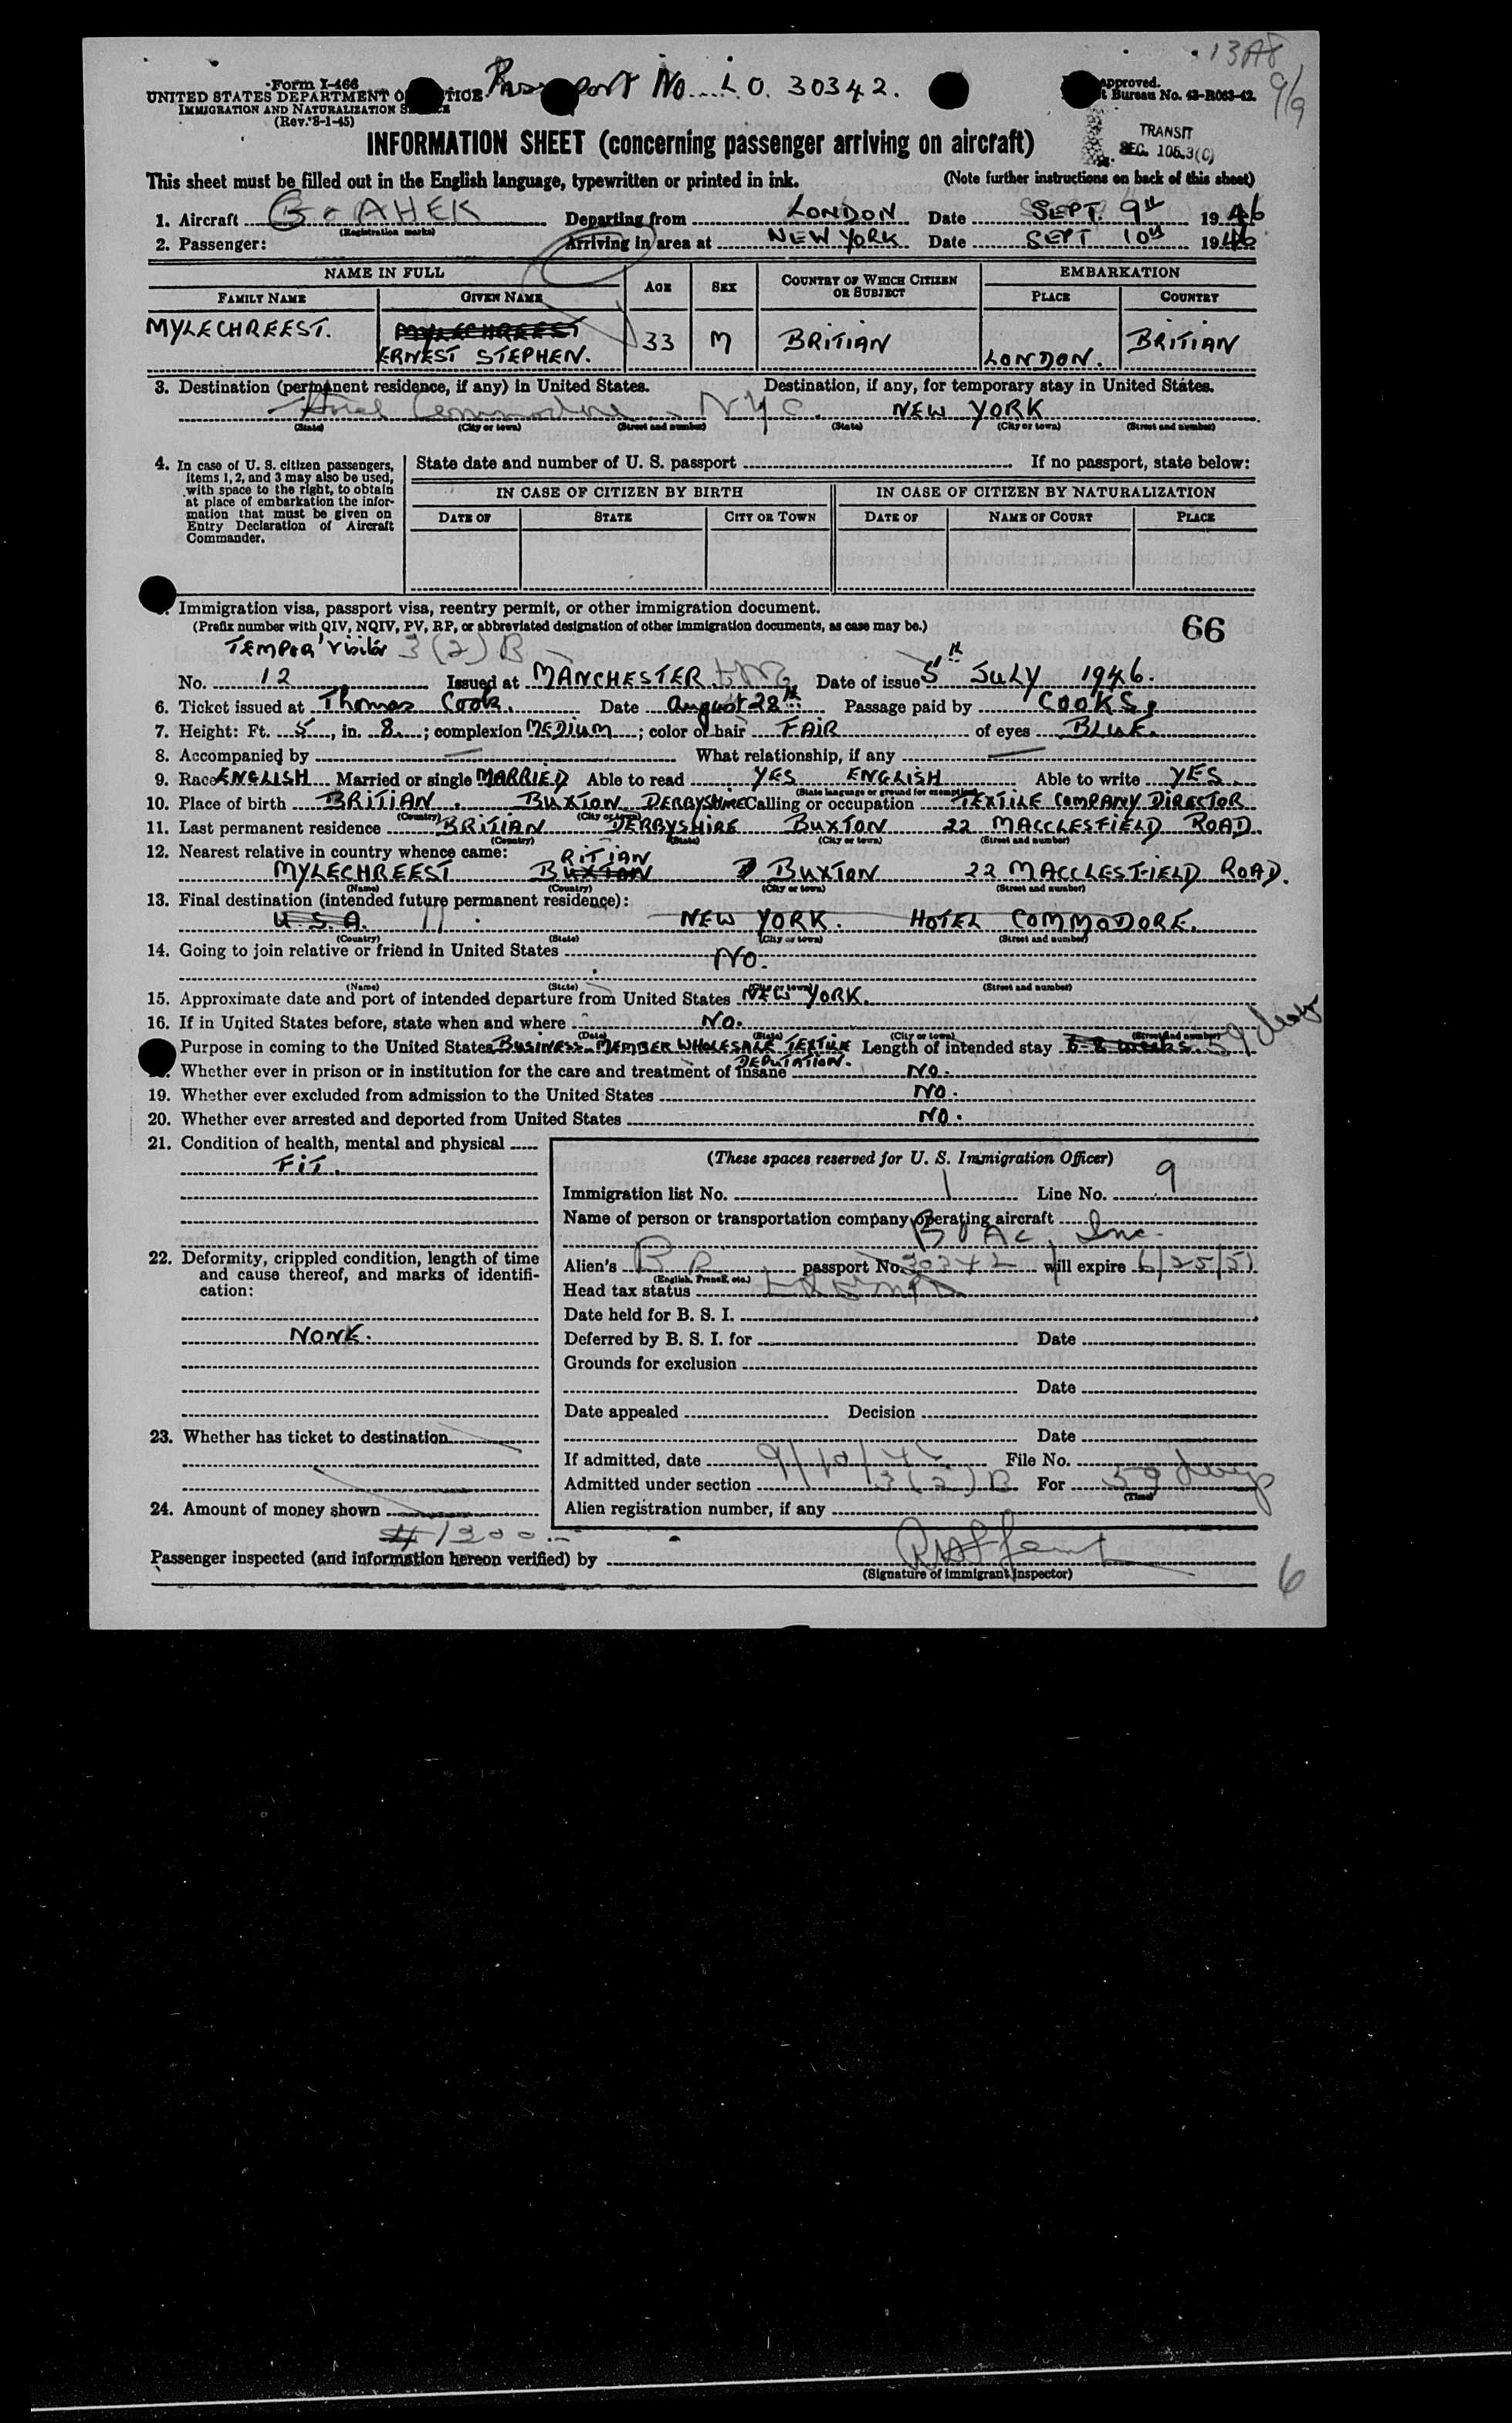 13A8
9/9
Form I-466
Passport No. L.O. 30342.
UNITED STATES DEPARTMENT OF JUSTICE
IMMIGRATION AND NATURALIZATION SERVICE
(Rev. 8-1-45)
Approved.
Bureau No. 43-R063-42.
TRANSIT
SEC. 105.3(C)
INFORMATION SHEET (concerning passenger arriving on aircraft)
This sheet must be filled out in the English language, typewritten or printed in ink. (Note further instructions on back of this sheet)
1. Aircraft G-AHEK Departing from LONDON Date SEPT. 9th 1946
(Registration marks)
2. Passenger: Arriving in area at NEW YORK Date SEPT 10th 1946
NAME IN FULL AGE SEX COUNTRY OF WHICH CITIZEN OR SUBJECT EMBARKATION
FAMILY NAME GIVEN NAME PLACE COUNTRY
MYLECHREEST. MYLECHREEST
ERNEST STEPHEN. 33 M BRITIAN LONDON. BRITIAN
3. Destination (permanent residence, if any) in United States. Destination, if any, for temporary stay in United States.
Hotel Commodore - NYC. NEW YORK
(State) (City or town) (Street and number) (State) (City or town) (Street and number)
4. In case of U. S. citizen passengers, items 1, 2, and 3 may also be used, with space to the right, to obtain at place of embarkation the information that must be given on Entry Declaration of Aircraft Commander.
State date and number of U. S. passport If no passport, state below:
IN CASE OF CITIZEN BY BIRTH IN CASE OF CITIZEN BY NATURALIZATION
DATE OF STATE CITY OR TOWN DATE OF NAME OF COURT PLACE
Immigration visa, passport visa, reentry permit, or other immigration document.
(Prefix number with QIV, NQIV, PV, RP, or abbreviated designation of other immigration documents, as case may be.)
66
Visitor 3(2)B
No. 12 Issued at MANCHESTER Date of issue 5th JULY 1946.
6. Ticket issued at Thomas Cook. Date August 28th Passage paid by COOKS.
7. Height: Ft. 5, in. 8; complexion MEDIUM; color of hair FAIR of eyes BLUE.
8. Accompanied by — What relationship, if any —
9. Race ENGLISH Married or single MARRIED Able to read YES ENGLISH Able to write YES
(State language or ground for exemption)
10. Place of birth BRITIAN. BUXTON DERBYSHIRE Calling or occupation TEXTILE COMPANY DIRECTOR
(Country) (City or town)
11. Last permanent residence BRITIAN DERBYSHIRE BUXTON 22 MACCLESFIELD ROAD.
(Country) (State) (City or town) (Street and number)
12. Nearest relative in country whence came:
MYLECHREEST BUXTON RITIAN BUXTON 22 MACCLESFIELD ROAD.
(Name) (Country) (City or town) (Street and number)
13. Final destination (intended future permanent residence):
U.S.A. NEW YORK. HOTEL COMMODORE.
(Country) (State) (City or town) (Street and number)
14. Going to join relative or friend in United States NO.
(Name) (State) (City or town) (Street and number)
15. Approximate date and port of intended departure from United States NEW YORK.
16. If in United States before, state when and where NO.
(Date) (State) (City or town) (Street and number)
Purpose in coming to the United States BUSINESS. MEMBER WHOLESALE TEXTILE DEPUTATION. Length of intended stay 6-8 weeks. 59 days
Whether ever in prison or in institution for the care and treatment of insane NO.
19. Whether ever excluded from admission to the United States NO.
20. Whether ever arrested and deported from United States NO.
21. Condition of health, mental and physical
FIT.
22. Deformity, crippled condition, length of time and cause thereof, and marks of identification:
NONE.
23. Whether has ticket to destination
24. Amount of money shown
$1300.-
(These spaces reserved for U. S. Immigration Officer)
Immigration list No. 1 Line No. 9
Name of person or transportation company operating aircraft
BOAC, Inc.
Alien's BR passport No. 30342 will expire 6/25/51
(English, French, etc.)
Head tax status
Date held for B. S. I.
Deferred by B. S. I. for Date
Grounds for exclusion
Date
Date appealed Decision
Date
If admitted, date 9/10/46 File No.
Admitted under section 3(2)B For 59 days
(Time)
Alien registration number, if any
Passenger inspected (and information hereon verified) by
(Signature of immigrant inspector)
6